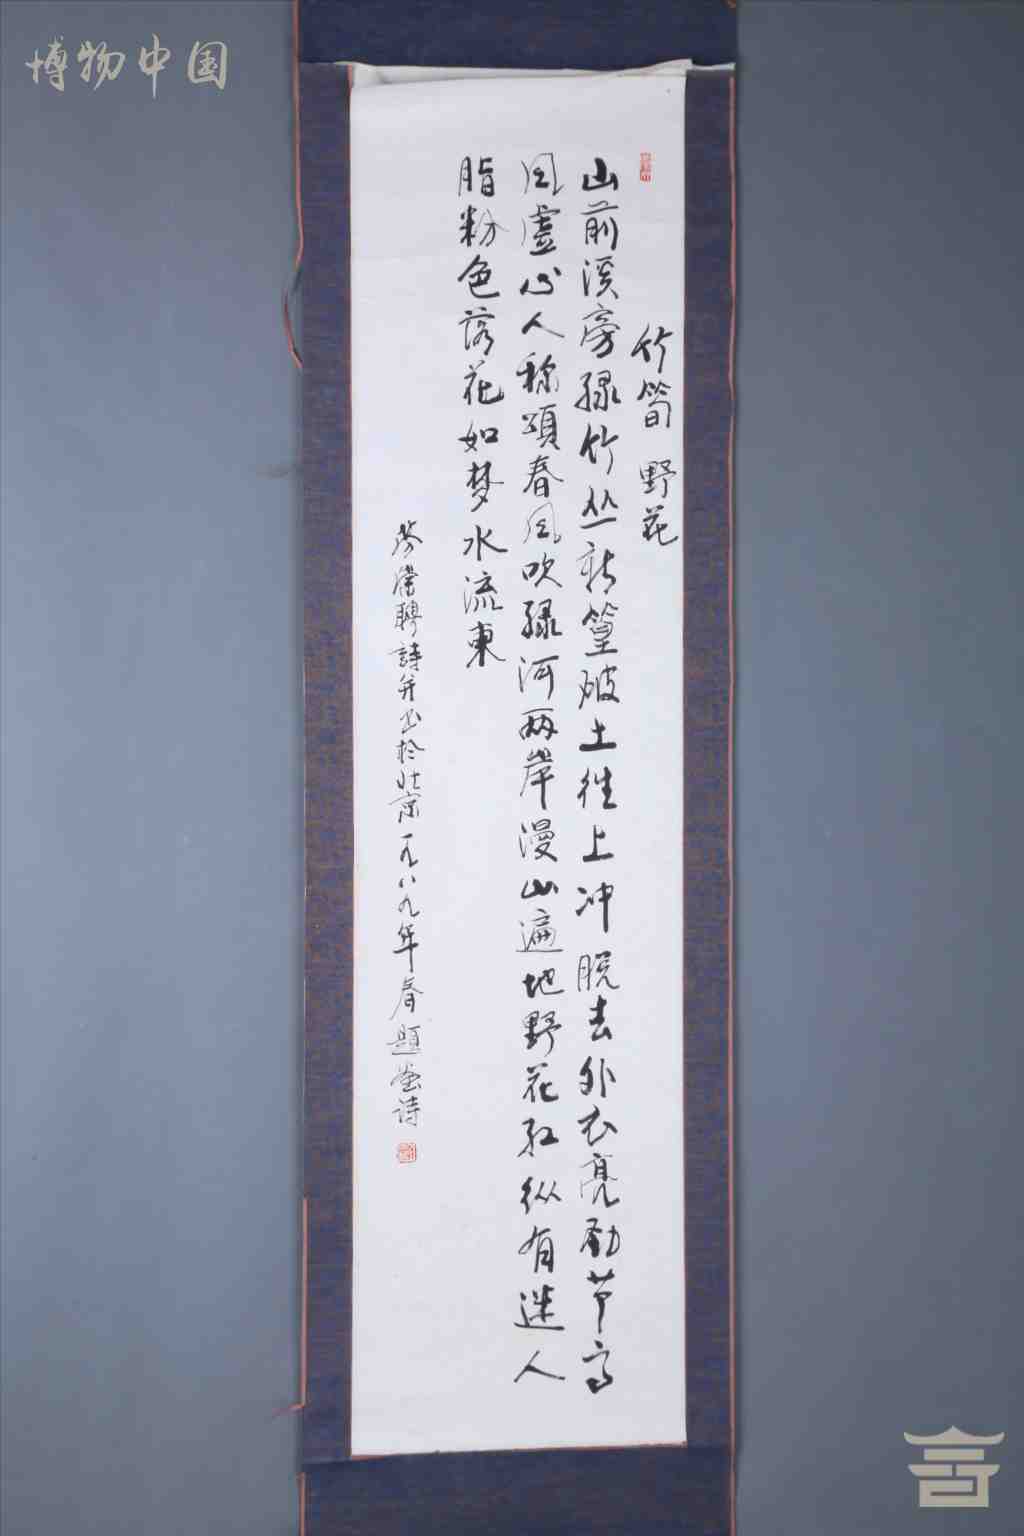 博物中国
竹筍 野花
山前溪旁绿竹丛新篁破土往上冲脱去外衣亮劲节高
风虚心人称頌春风吹绿河两岸漫山遍地野花红纵有迷人
脂粉色落花如梦水流東
聘詩并书於北京一九八九年春題诗